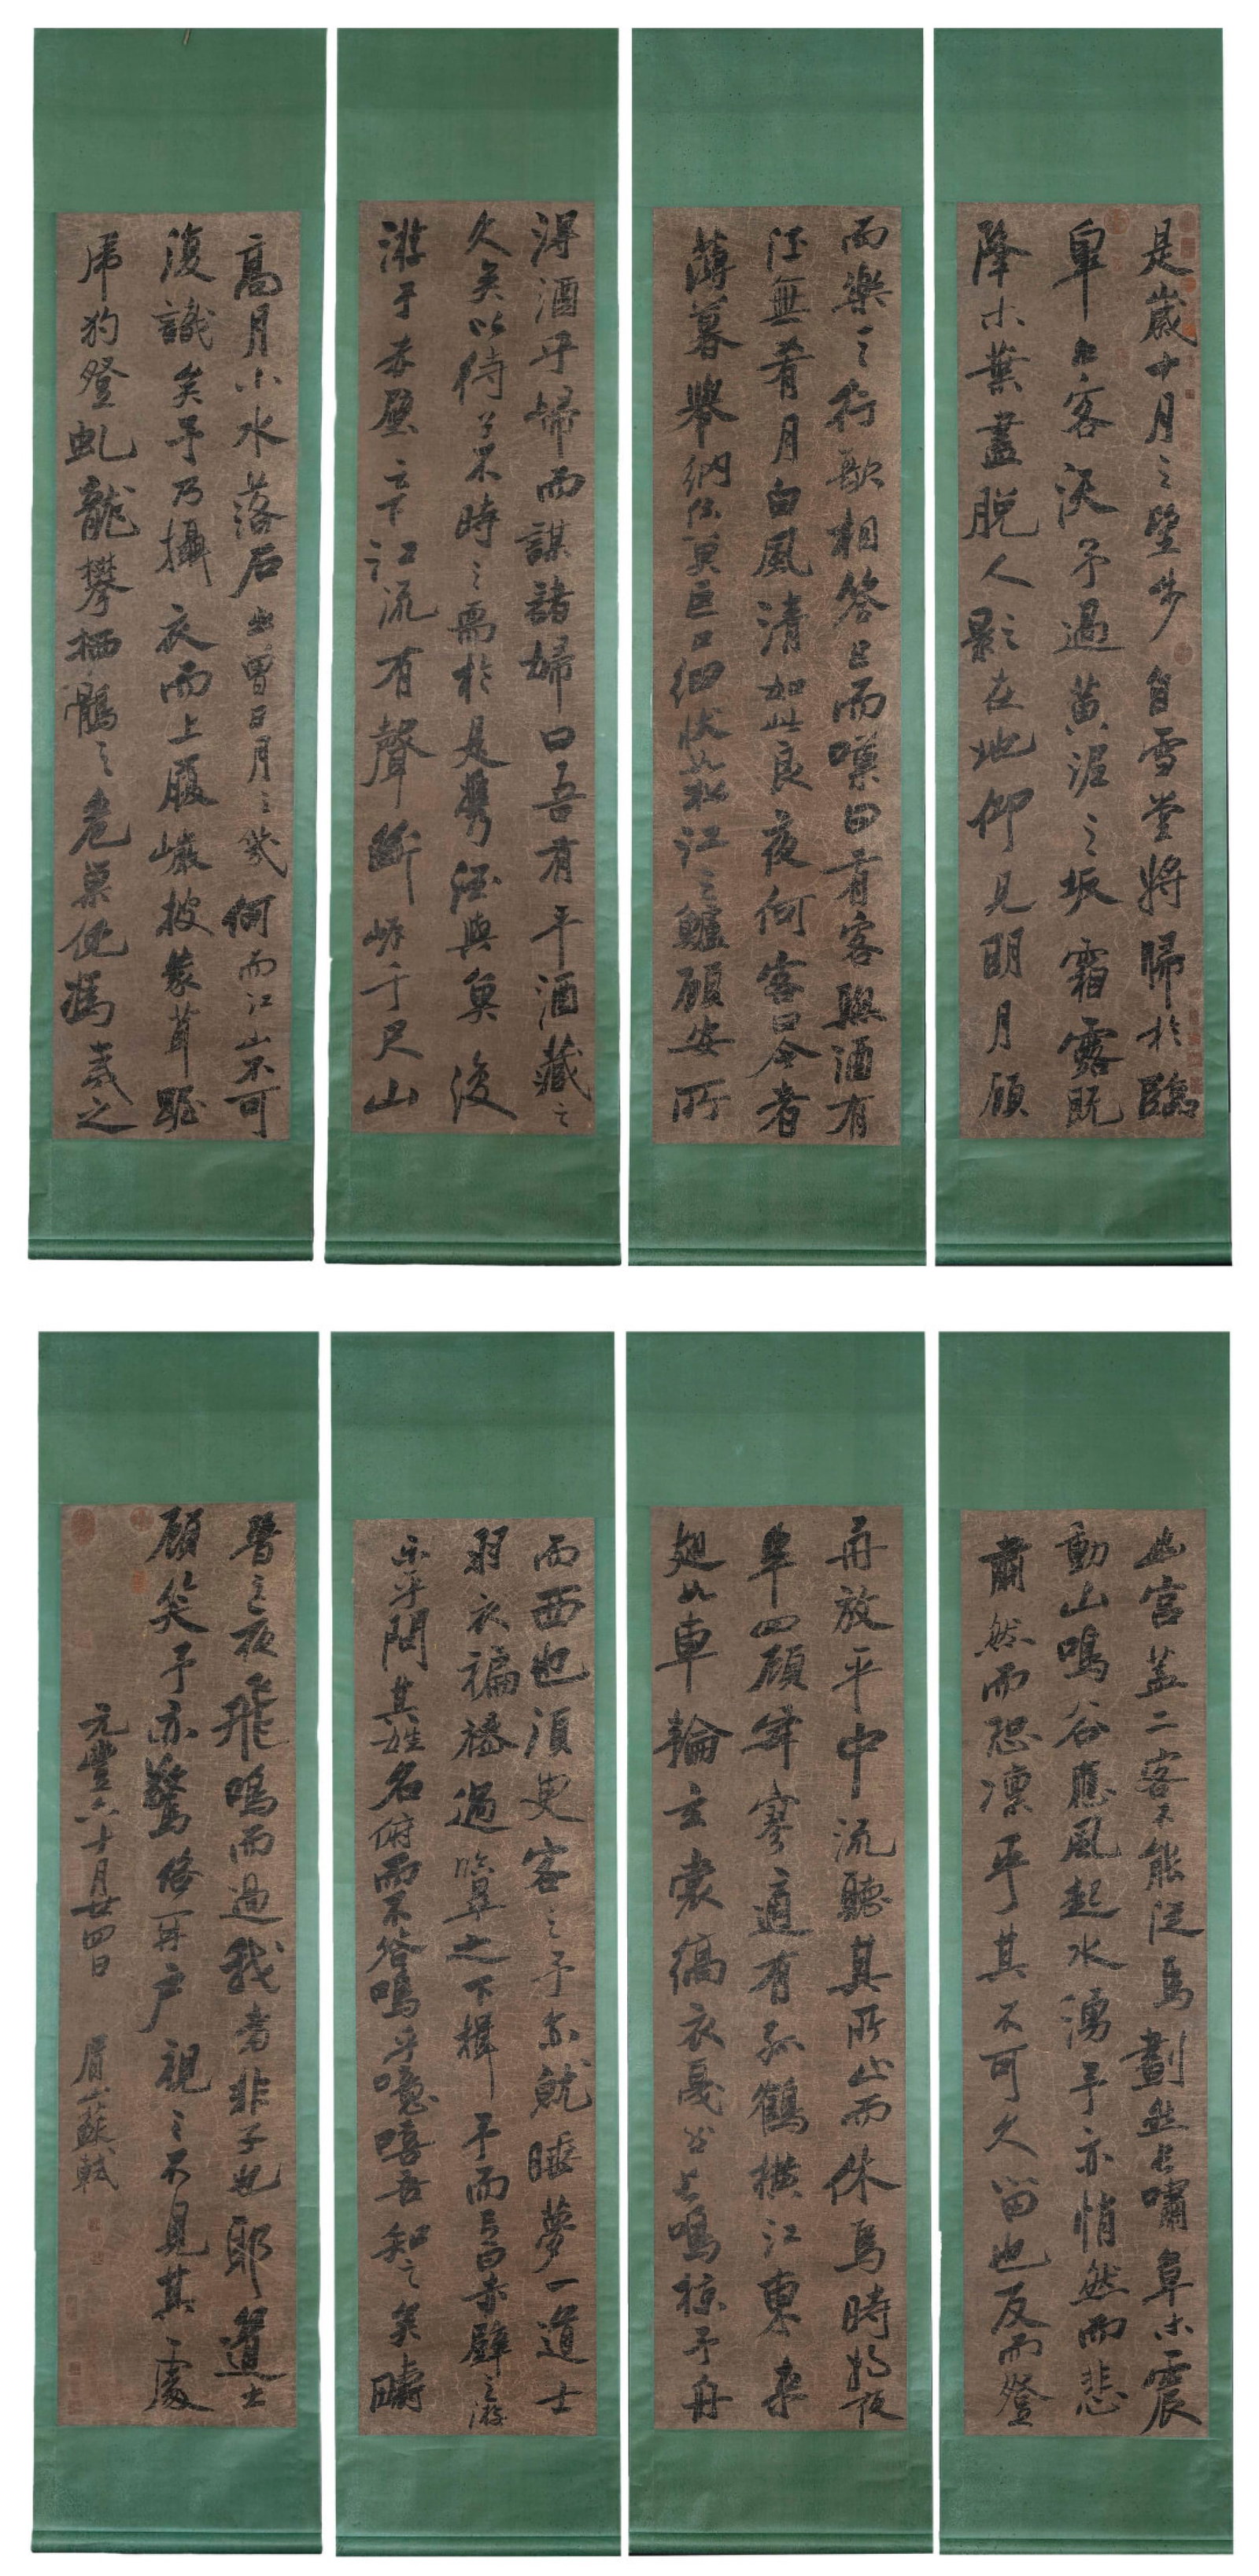 是歲十月之望步自雪堂將歸於臨
皐二客從予過黃泥之坂霜露既
降木葉盡脫人影在地仰見明月顧
而樂之行歌相答已而嘆曰有客無酒有
酒無肴月白風清如此良夜何客曰今者
薄暮舉網得魚巨口細狀如松江之鱸顧安所
得酒乎歸而謀諸婦曰吾有斗酒藏之
久矣以待子不時之需於是攜酒與魚復
游于赤壁之下江流有聲斷岸千尺山
高月小水落石出曾日月之幾何而江山不可
復識矣予乃攝衣而上履巖披蒙茸踞
虎豹登虬龍攀栖鶻之危巢俯馮夷之
幽宮蓋二客不能從焉劃然長嘯草木震
動山鳴谷應風起水湧予亦悄然而悲
肅然而恐凛乎其不可久留也反而登
舟放乎中流聽其所止而休焉時將夜
半四顧寂寥適有孤鶴橫江東來
翅如車輪玄裳縞衣戛然長鳴掠予舟
而西也須臾客去予亦就睡夢一道士
羽衣過臨皐之下揖予而言曰赤壁之游
樂乎問其姓名俯而不答嗚乎噫嘻吾知之矣疇
昔之夜飛鳴而過我者非子也耶道士
顧笑予亦驚悟開戶視之不見其處
元豐六十月廿四日 眉山蘇軾